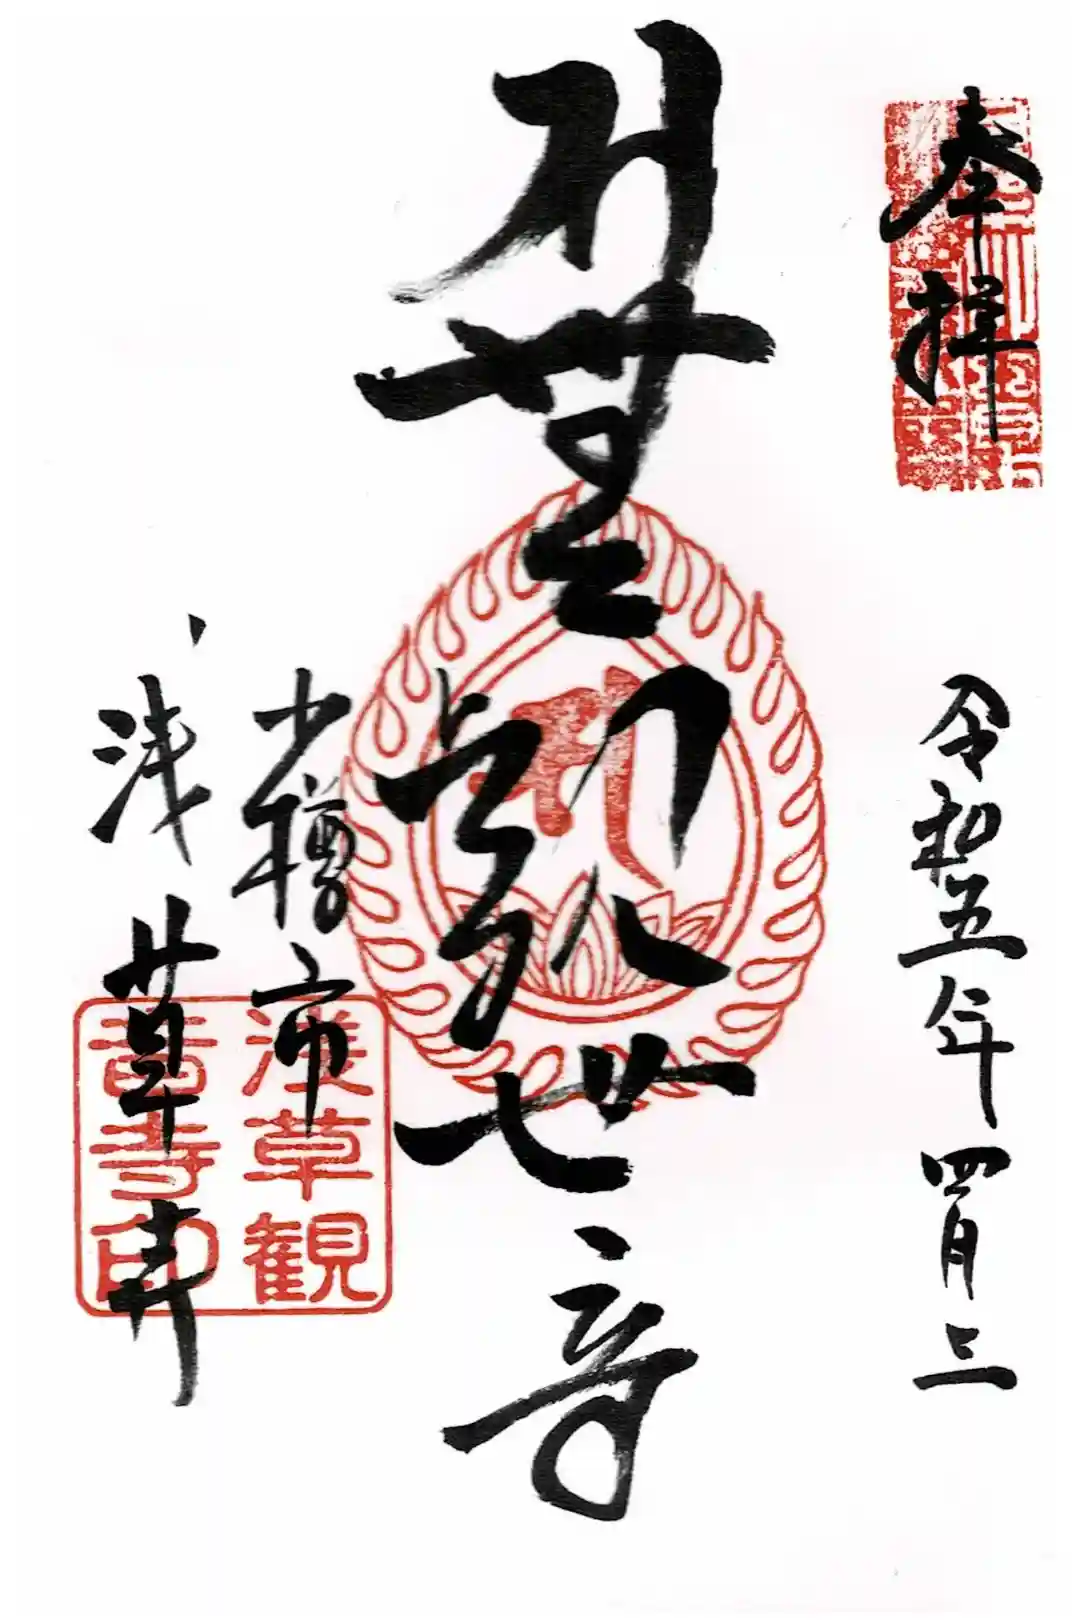 奉拝
令和五年四月三
聖観世音
小樽市
浅草寺
浅草観
音寺印